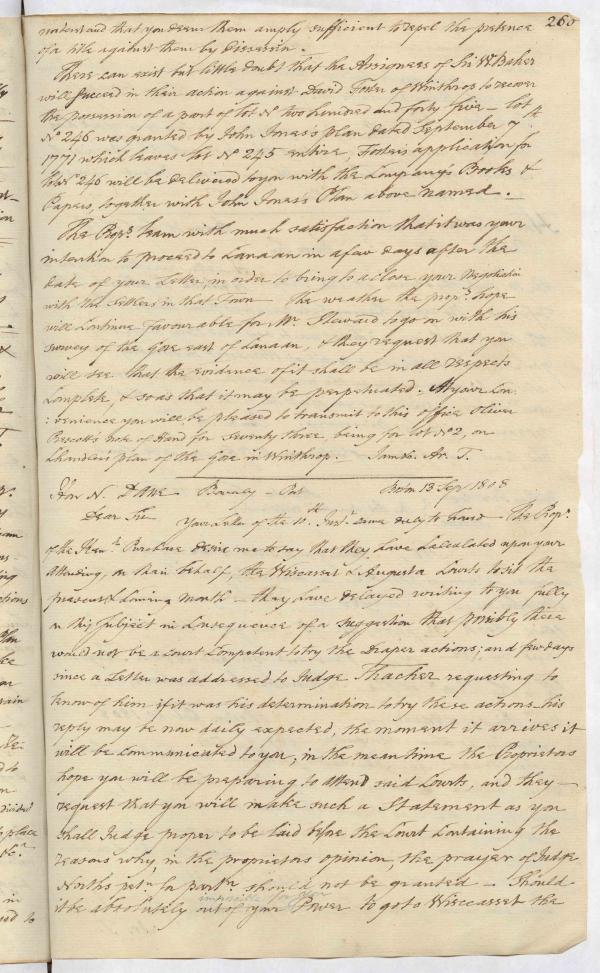 260
understand that you deem them amply sufficient to repel the pretence
of a title against them by disseisin.
There can exist but little doubt that the Assignees of Sir Wm Baker
will succeed in their action against David Foster of Winthrop to recover
the possession of a part of Lot No two hundred and forty five — Lot
No 246 was granted by John Jones's plan dated September 7th
1771 which leaves Lot No 245 entire, Foster's application for
Lot No 246 will be delivered to you with the Company's Books &
Papers, together with John Jones's Plan above named. —
The Prop.rs learn with much satisfaction that it was your
intention to proceed to Canaan in a few days after the
date of your Letter, in order to bring to a close your Negotiation
with the settlers in that Town — the weather the prop.rs hope
will continue favourable for Mr. Steward to go on with his
survey of the Gore east of Canaan, & they request that you
will see that the evidence of it shall be in all respects
complete, & so as that it may be perpetuated. At your Con
:venience you will be pleased to transmit to this office Oliver
Prescott's Note of Hand for Seventy three, being for Lot No 2, on
Chandler's plan of the Gore in Winthrop. I am &c. Ar. T.
Hon N. Dane Beverly — Pst Boston 13 Sep 1808
Dear Sir Your Letter of the 10th Inst. came duly to hand — The Prop.rs
of the Kenn.k Purchase desire me to say that they have calculated upon your
attending, on their behalf, the Wiscasset & Augusta Courts to sit the
present & coming month — they have delayed writing to you fully
on this subject in Consequence of a suggestion that possibly there
would not be a court Competent to try the Draper actions; and few days
since a Letter was addressed to Judge Thacher requesting to
know of him if it was his determination to try these actions his
reply may be now daily expected, the moment it arrives it
will be communicated to you, in the mean time the Proprietors
hope you will be preparing to attend said Courts, and they
request that you will make such a Statement as you
shall Judge proper to be laid before the Court Containing the
reasons why, in the proprietors opinion, the prayer of Judge
North's pet.n for part.n should not be granted — Should
impossible for you
it be absolutely out of your Power to go to Wiscasset the